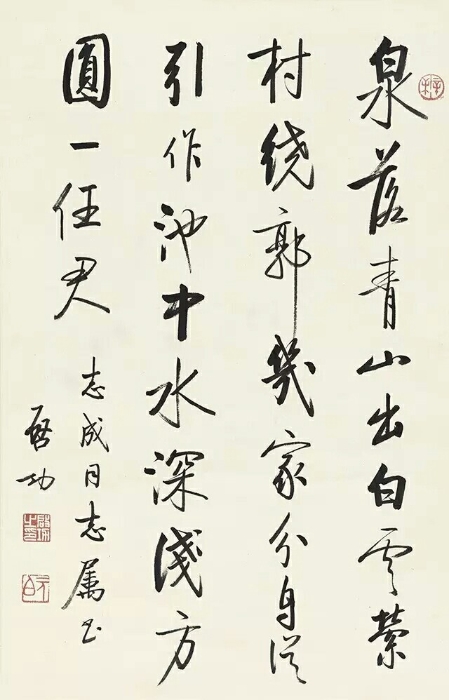 泉落青山出白雲縈
村繞郭幾家分自從
引作池中水深淺方
圓一任君
志成同志属书
啓功
啓功之印
元白